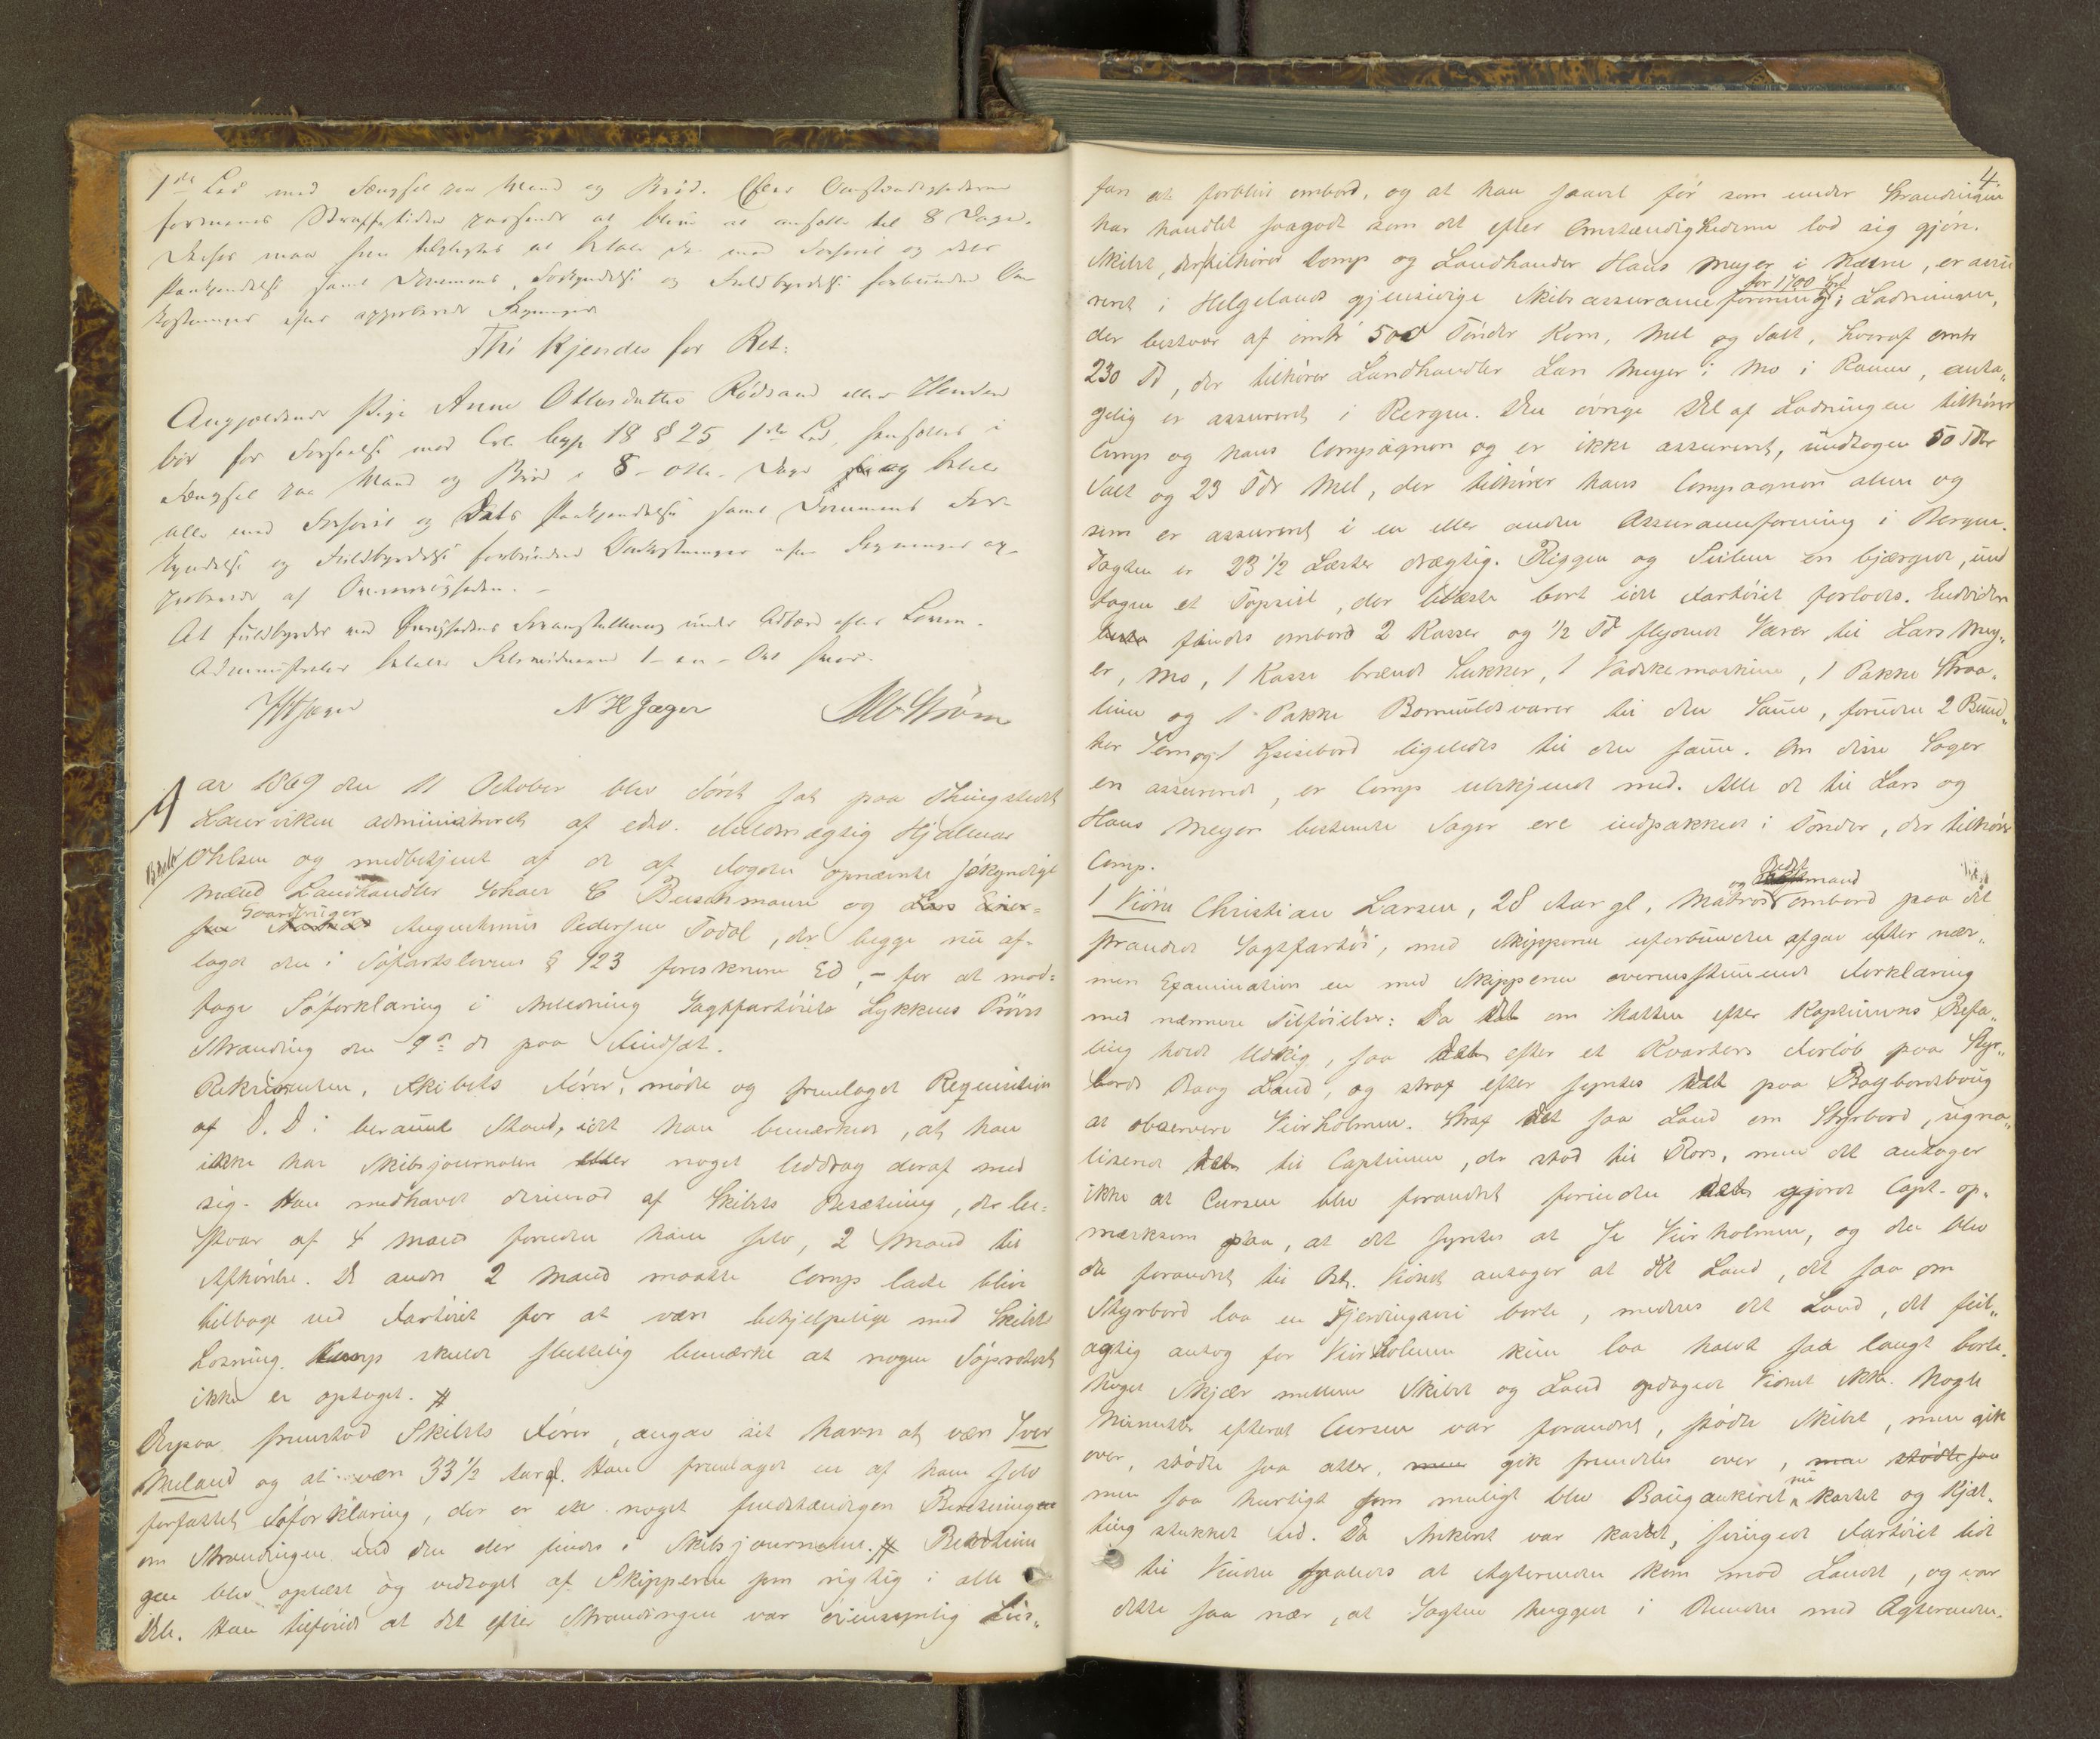 1ste Led med Fængsel paa Vand og Brød. Efter Omstændighederne
formenes Straffetiden passende at blive at ansætte til 8 Dage.
Derhos maa hun tilpligtes at betale de med Forhøret og dets
Paakjendelse samt Dommens Forkyndelse og Fuldbyrdelse forbundne Om
kostninger efter approberede Regninger
Thi kjendes for Ret:
Angjældende Pige Anne Ottosdatter Rødsand
bør for Forseelse mod Crl. Cap 18 § 25 1ste Led hensættes i
Fængsel paa Vand og Brød i 8 - otte - Dage og betale
alle med Forhøret og Dets Paakjendelse samt Dommens For-
kyndelse og Fuldbyrdelse forbundne Omkostninger efter Regninger ap-
proberede af Øvrigheden. -
At fuldbyrdes ved Øvrighedens Foranstaltning under Adfærd efter Loven.
1 - en - Ort
N H Jæger
Strøm
Aar 1869 den 11 October blev Søret sat paa Thingstedet
Laurviken administreret af edsv. Fuldmægtig Hjalmar
Ohlsen og medbetjent af de af Fogden opnævnte søkyndige
Mænd Landhandler Johan C Buschmann og
Gaardbruger
Augustinus Pedersen Todal, der begge nu af-
lagde den i Søfartslovens § 123 foreskrevne Ed, - for at mod-
tage Søforklaring i Anledning Jagtfartøiets Lykkens Prøves
Stranding den 9de ds paa
Rekvirenten, Skibets Fører, mødte og fremlagde Requisition
af D. D. i beramt Stand, idet han bemærkede, at han
ikke har Skibsjournalen eller noget Uddrag deraf med
sig. Han medhavde derimod af Skibets Besætning, der be-
stod af 4 Mand foruden ham selv, 2 Mand til
Afhørelse. De andre 2 Mand maatte Comp lade blive
tilbage ved Fartøiet for at være behjelpelige med Skibets
Losning. Comp skulde sluttelig bemærke at nogen Søprotest
ikke er optaget. #
Derpaa fremstod Skibets Fører, angav sit Navn at være Iver
Meland og at være 33 1/2 Aar gl. Han fremlagde en af ham selv
forfattet Søforklaring, der er noget fuldstændigere Beretningen
om Strandingen end den der findes i Skibsjournalen. # Beretnin
gen blev oplæst og vedtaget af Skipperen som rigtig i alle
Dele. Han tilføiede at det efter Strandingen var øiensynlig Livs„
4.
fare at forblive ombord, og at han saavel før som under Strandingen
har handlet saagodt som det efter Omstændighederne lod sig gjøre.
Skibet, der tilhører Comp og Landhandler Hans Meyer i Ranen, er assu
for 1700 Spd
reret i Helgelands gjensidige Skibsassuranceforening; Ladningen,
der bestaar af omtr 500 Tønder Korn, Mel og Salt, hvoraf omtr
230 Td, der tilhører Landhandler Lars Meyer i Mo i Ranen, anta„
gelig er assureret i Bergen. Den øvrige Del af Ladningen tilhører
Comp og hans Compagnon og er ikke assureret, undtagen 50 Tdr
Salt og 23 Tdr Mel, der tilhører hans Compagnon alene og
som er assureret i en eller anden Assuranceforening i Bergen.
Jagten er 23 1/2 Læster drægtig. Riggen og Seilene er bjærget, und
tagen et Topseil, der blæste bort idet Fartøiet forlodes. Endvidere
findes ombord 2 Kasser og 1/2 Td flydende Varer til Lars Mey„
er, Mo, 1 Kasse brændt Sukker, 1 Vadskemaskine, 1 Pakke
og 1 Pakke Bomuldsvarer til den Samme, foruden 2 Bund„
ter Jern og 1 Spisebord ligeledes til den samme. Om disse Sager
er assureret, er Comp ubekjendt med. Alle de til Lars og
Hans Meyer bestemte Sager ere indpakkede i Tønder, der tilhører
Comp.
og Bedstmand
1 Vidne Christian Larsen, 28 Aar gl, Matros ombord paa det
strandede Jagtfartøi, med Skipperen uforbunden afgav efter nær„
mere Examination en med Skipperen overensstemmende Forklaring
med nærmere Tilføielser: Da Det om Natten efter Kapteinens Befa„
ling holdt Udkig, saa Det efter et Kvarters Forløb paa Styr„
bords Boug Land, og strax efter syntes Det paa Bagbordsboug
at observere Veirholmen. Strax Det saa Land om Styrbord, signa„
liserede Det til Capteinen, der stod til Rors, men det antager
ikke at Cursen blev forandret forinden Det gjorde Capt. op„
mærksom paa, at det syntes at se Veirholmen, og den blev
da forandret til Bb. Vidnet antager at det Land, det saa om
Styrbord laa en Fjerdingsvei borte, medens det Land, det feil„
agtig antog for Veirholmen kun laa halvt saa langt borte.
Noget Skjær mellem Skibet og Land opdagede Vidnet ikke. Nogle
Minutter efterat Cursen var forandret, stødte Skibet, men gik
over, stødte saa atter, men gik fremdeles over, men stødte saa
nu
men saa hurtigt som muligt blev Bougankeret kastet og Kjæt„
ting stukket ud. Da Ankeret var kastet, svingede Fartøiet lidt
til Vinden saaledes at Agterenden kom mod Landet, og var
dette saa nær, at Jagten huggede i Bunden med Agterenden.